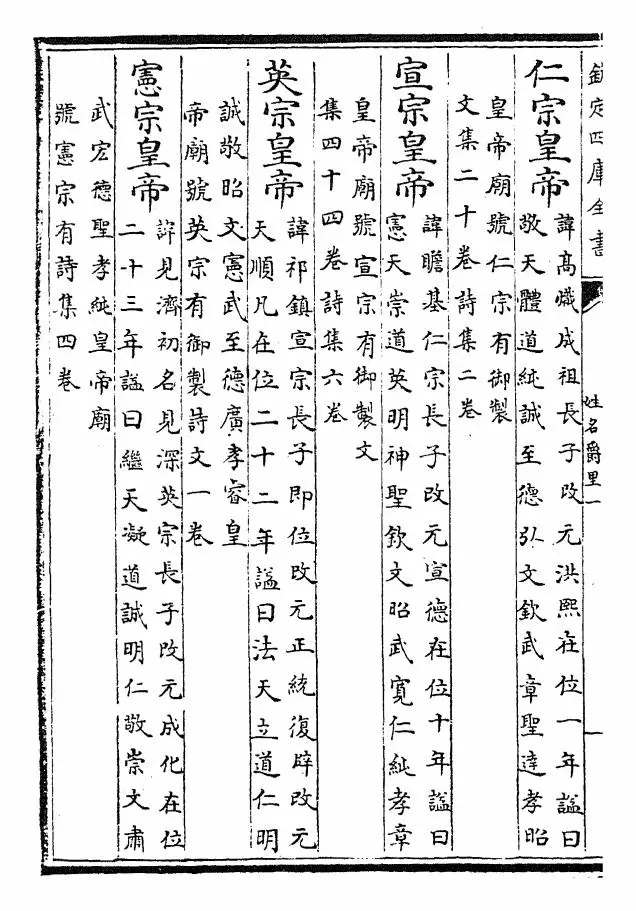 欽定四庫全書
姓名爵里一
一
仁宗皇帝
諱高熾成祖長子改元洪熙在位一年諡曰
敬天體道純誠至德弘文欽武章聖達孝昭
皇帝廟號仁宗有御製
文集二十卷詩集二卷
宣宗皇帝
諱瞻基仁宗長子改元宣德在位十年諡曰
憲天崇道英明神聖欽文昭武寛仁純孝章
皇帝廟號宣宗有御製文
集四十四卷詩集六卷
英宗皇帝
諱祁鎮宣宗長子即位改元正統復辟改元
天順凡在位二十二年諡曰法天立道仁明
誠敬昭文憲武至德廣孝睿皇
帝廟號英宗有御製詩文一卷
憲宗皇帝
諱見濟初名見深英宗長子改元成化在位
二十三年諡曰繼天凝道誠明仁敬崇文肅
武宏德聖孝純皇帝廟
號憲宗有詩集四卷